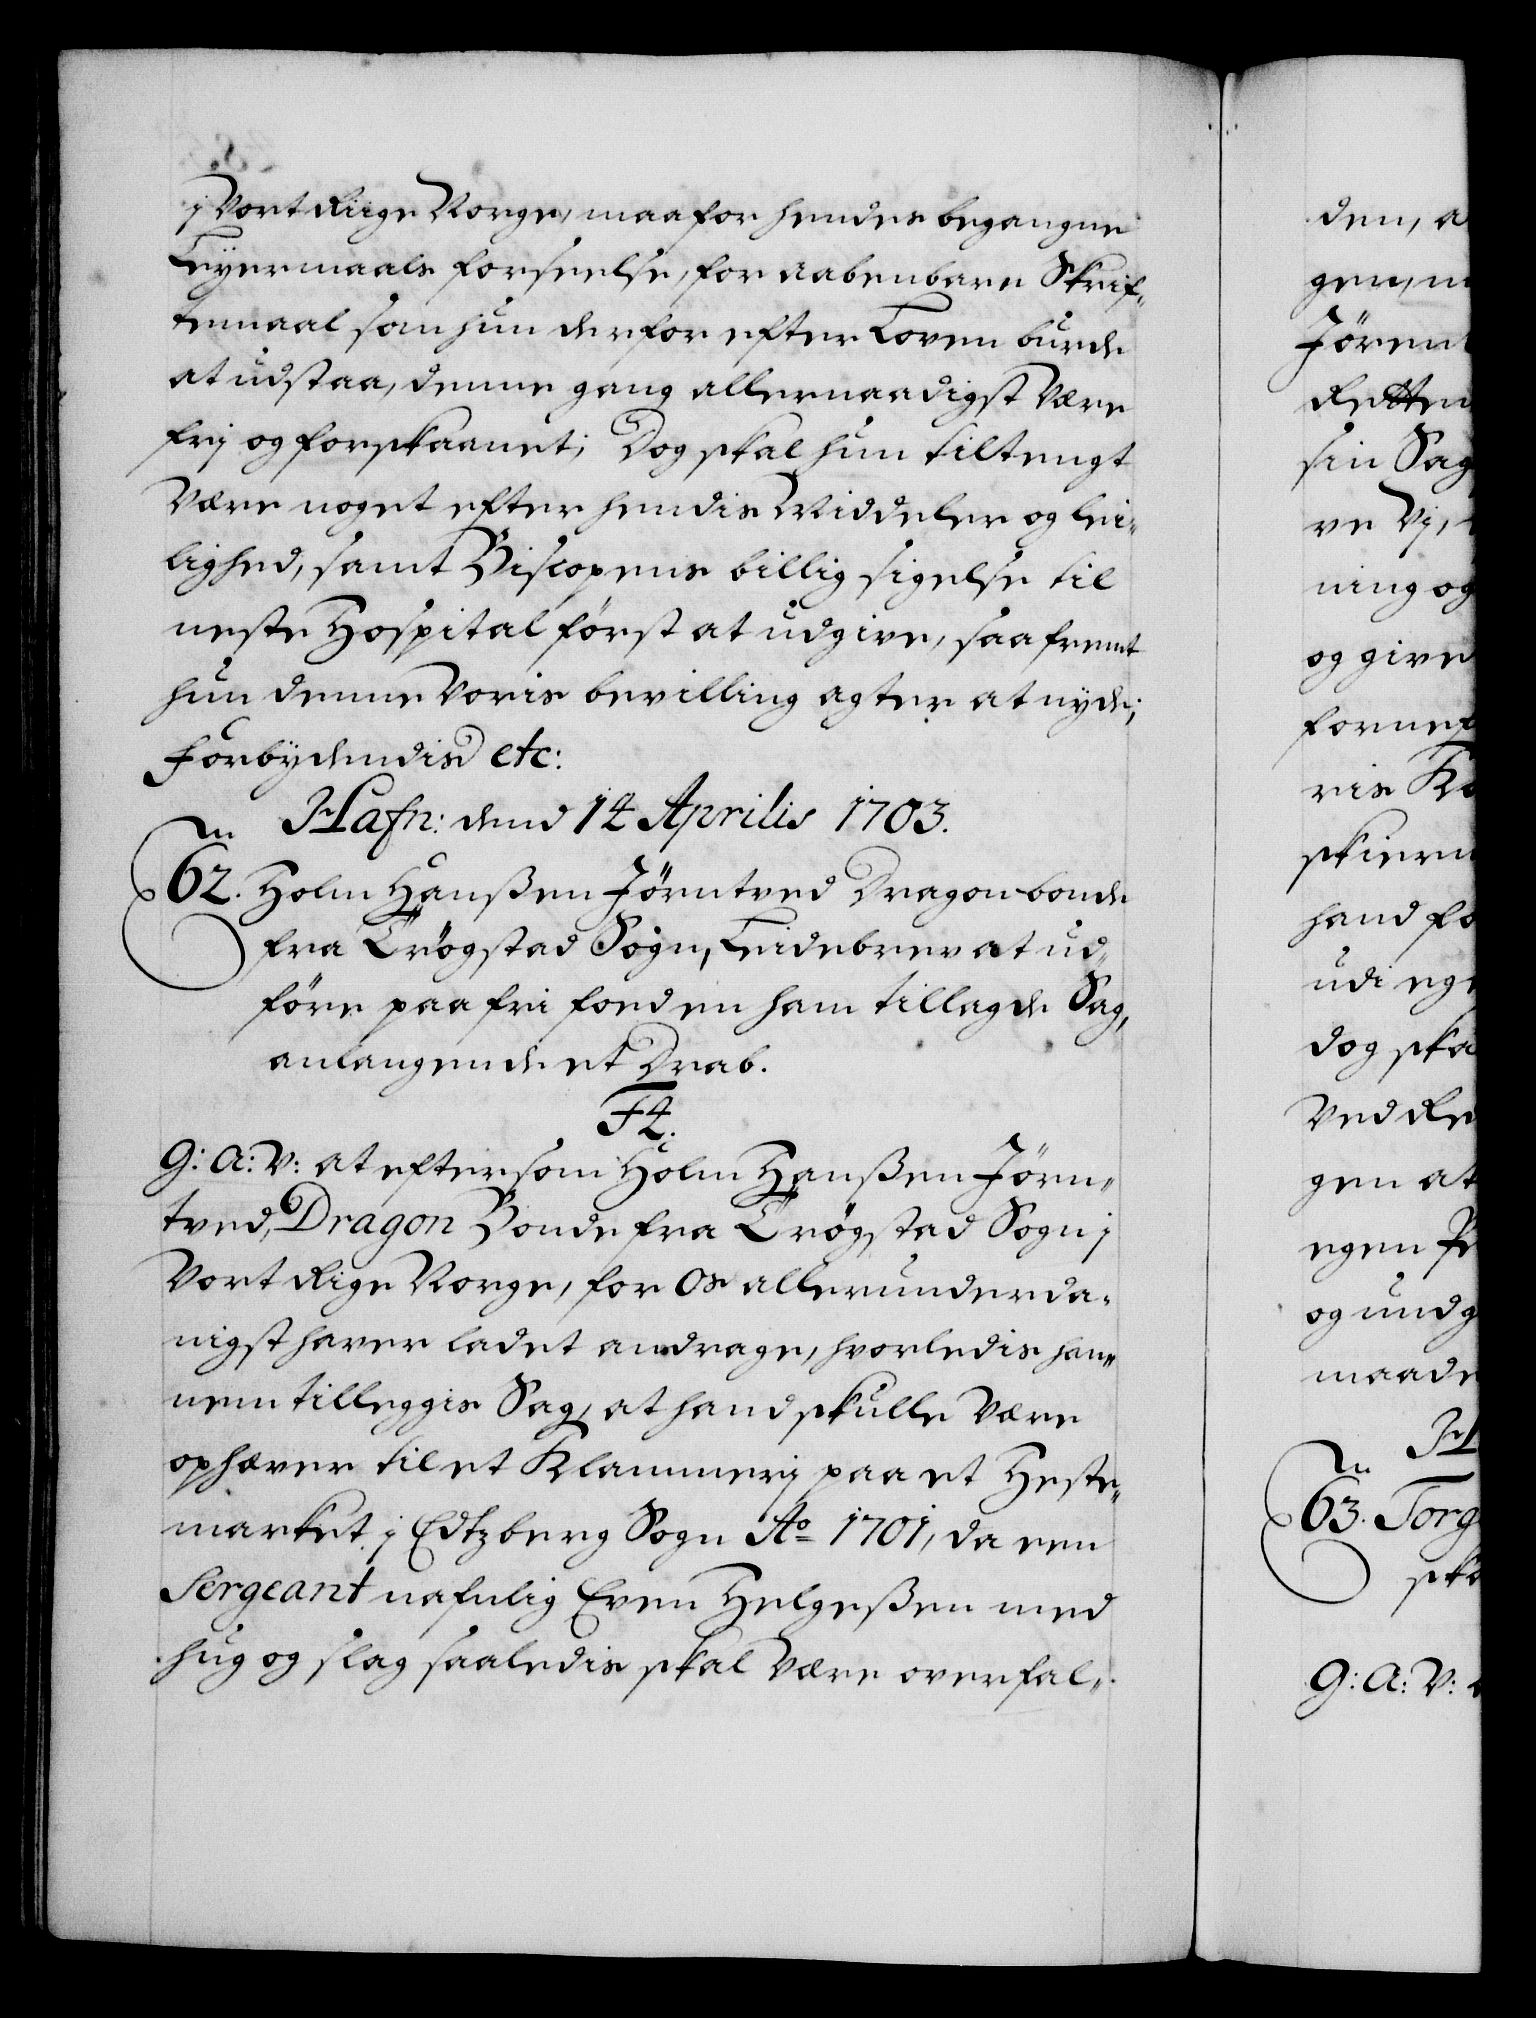 j Vort Riige Norge, maa for hendes begangne
Leyermaals forseelse, for aabenbare Skrif-
temaal som hun derfor efter Loven burde
at udstaa, denne gang allernaadigst Være
frj og forskaanet; Dog skal hun tiltengt
Være noget efter hendis Middeler og lei-
lighed, samt Biscopens billig sigelse til
neste Hospital først at udgive, saafremt
hun denne Voris bevilling agter at nyde;
Forbydendis etc:
Hafn: dend 14 Aprilis 1703.
62. Holm Hanßen Jørntved Dragon-bonde
fra Trögstad Sogn, Leidebrev at ud-
före paa fri foed en ham tillagde Sag,
anlangende et Drab.
F4.
G: A: V: at eftersom Holm Hanßen Jörn-
tved, Dragon Bonde fra Trögstad Sogn j
Vort Rige Norge, for Os allerunderda-
nigst haver ladet andrage, hvorledis han-
nem tilleggis Sag, at hand skulle Være
ophaver til et Klammerj paa et Heste-
market j Edtzberg Sogn Ao 1701, da een
Sergeant nafnlig Even Helgeßen med
hug og slag saaledis skal Være overfal-
den, a
gen, m
Jören
Retten
sin Sag
ve Vj,
ning og
og give
fornef
ris Ko
skierm
hand fo
udi ege
dog ska
Ved Re
gen at
egen Pe
og undg
maade
H
63. Torg
ska
G: A: V: